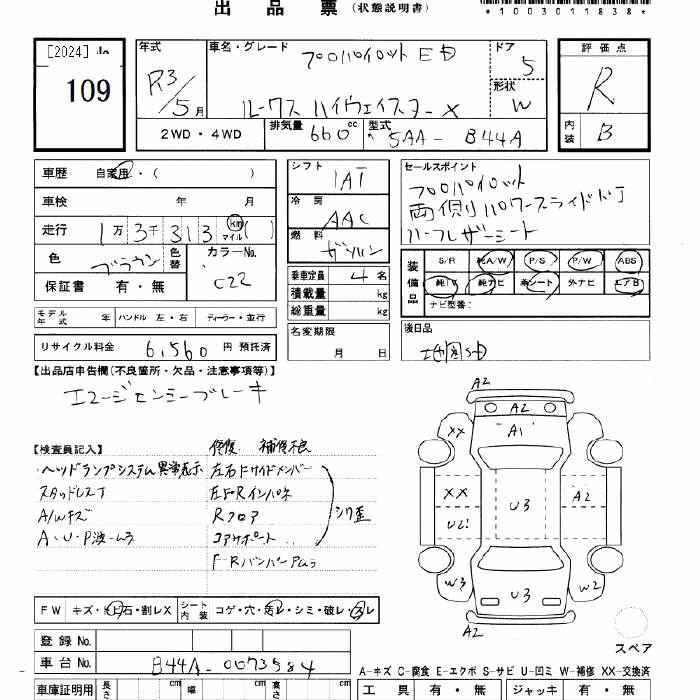 出品票（状態説明書）
*1003011838*
[2024]
109
年式 R3/5月
車名・グレード プロパイロット ED
ルークス ハイウェイスター X
ドア 5
形状 W
評価点 R
内装 B
2WD・4WD
排気量 660cc
型式 5AA-B44A
車歴 自家用・( )
車検 年 月
走行 1万3千313 km マイル ( )
色 ブラウン 色替
カラーNo. C22
保証書 有・無
シフト IAT
冷房 AAC
燃料 ガソリン
乗車定員 4名
積載量 kg
総重量 kg
セールスポイント
プロパイロット
両側パワースライドドア
ハーフレザーシート
装備品 S/R 純A/W P/S P/W ABS
純TV 純ナビ 革シート 外ナビ エアB
ナビ型番：
モデル年式 年 ハンドル 左・右 ディーラー・並行
リサイクル料金 6,560円 預託済
名変期限 月 日
後日品
地図SD
【出品店申告欄(不良箇所・欠品・注意事項等)】
エマージェンシーブレーキ
【検査員記入】
修復 補修不良
ヘッドランプシステム異常表示
左右Fサイドメンバー
スタッドレスT
左F・Rインパネ
A/Wキズ
Rフロア
シワ歪
A・U・P波・ムラ
コアサポート
F・Rバンパー Pムラ
A2
A2
XX
A1
XX
U3
A2
U2
W3
U3
W2
A2
スペア
FW キズ・ヒ石・割レX シート内装 コゲ・穴・汚レ・シミ・破レ・スレ
登録No.
車台No. B44A-0073584
A-キズ C-腐食 E-エクボ S-サビ U-凹ミ W-補修 XX-交換済
車庫証明用 長さ cm 幅 cm 高さ cm
工具 有・無 ジャッキ 有・無